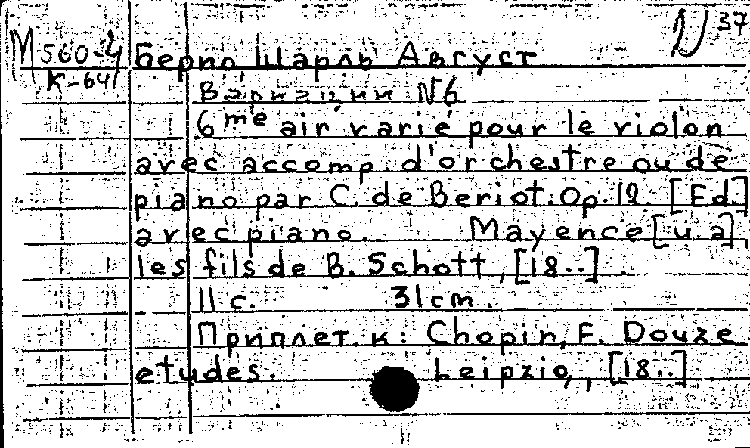 37
М 560-4 Берио Шарль Август
К-641
Вариации №6
6me air varié pour le violon
avec accomp. d'orchestre ou de
piano par C. de Beriot. Op. 12. [Ed.]
avec piano. Mayence [u. a.],
les fils de B. Schott, [18..]
11 c. 31 cm.
Приплет. к: Chopin, F. Douze
etudes. Leipzig, [18..]